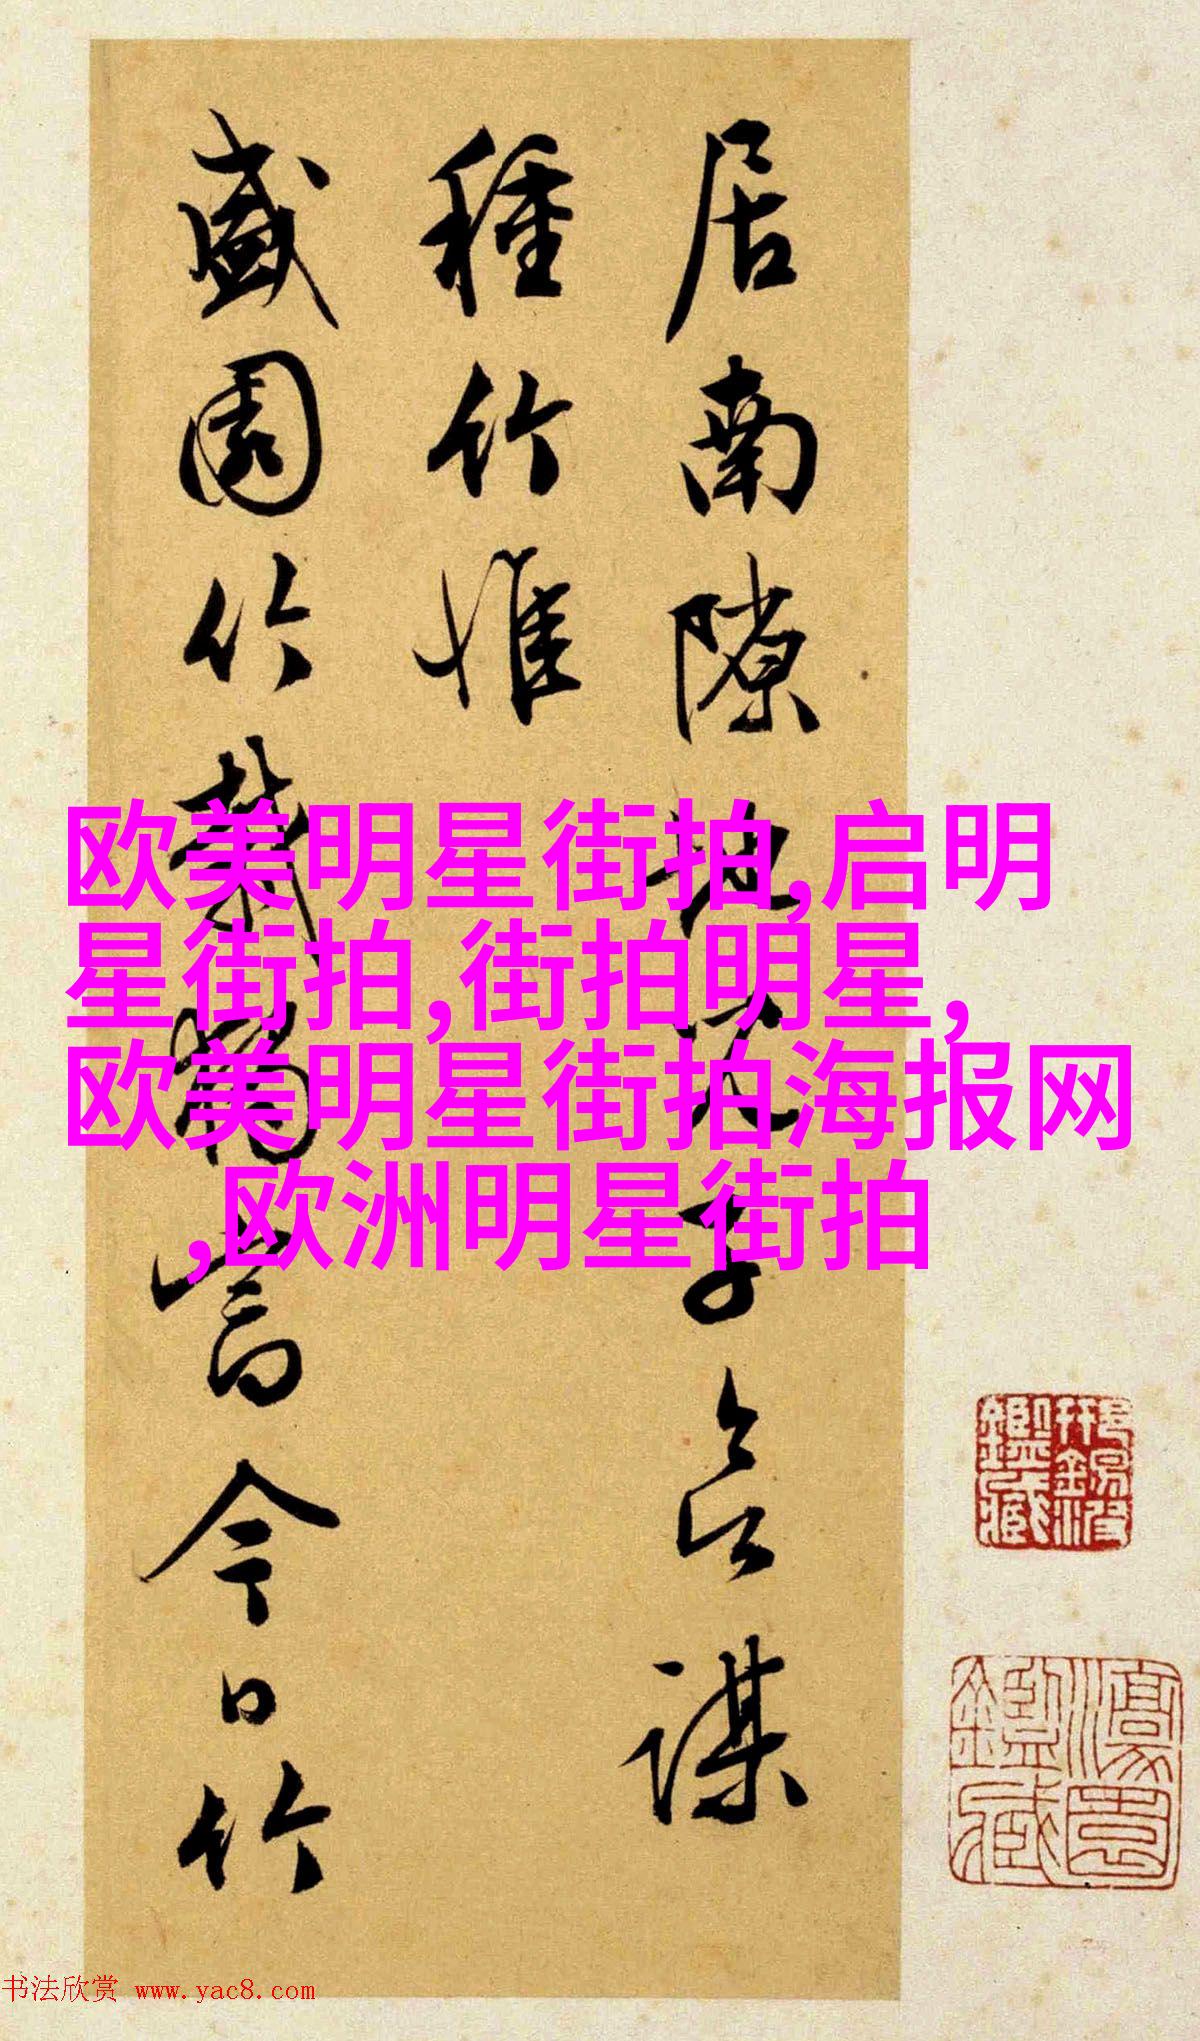 居南隙地
子合謀
種竹惟
盛園竹
言今日竹
欧美明星街拍,启明
星街拍,街拍明星,
欧美明星街拍海报网
,欧洲明星街拍
鑑藏
鑑藏
书法欣赏 www.yac8.com